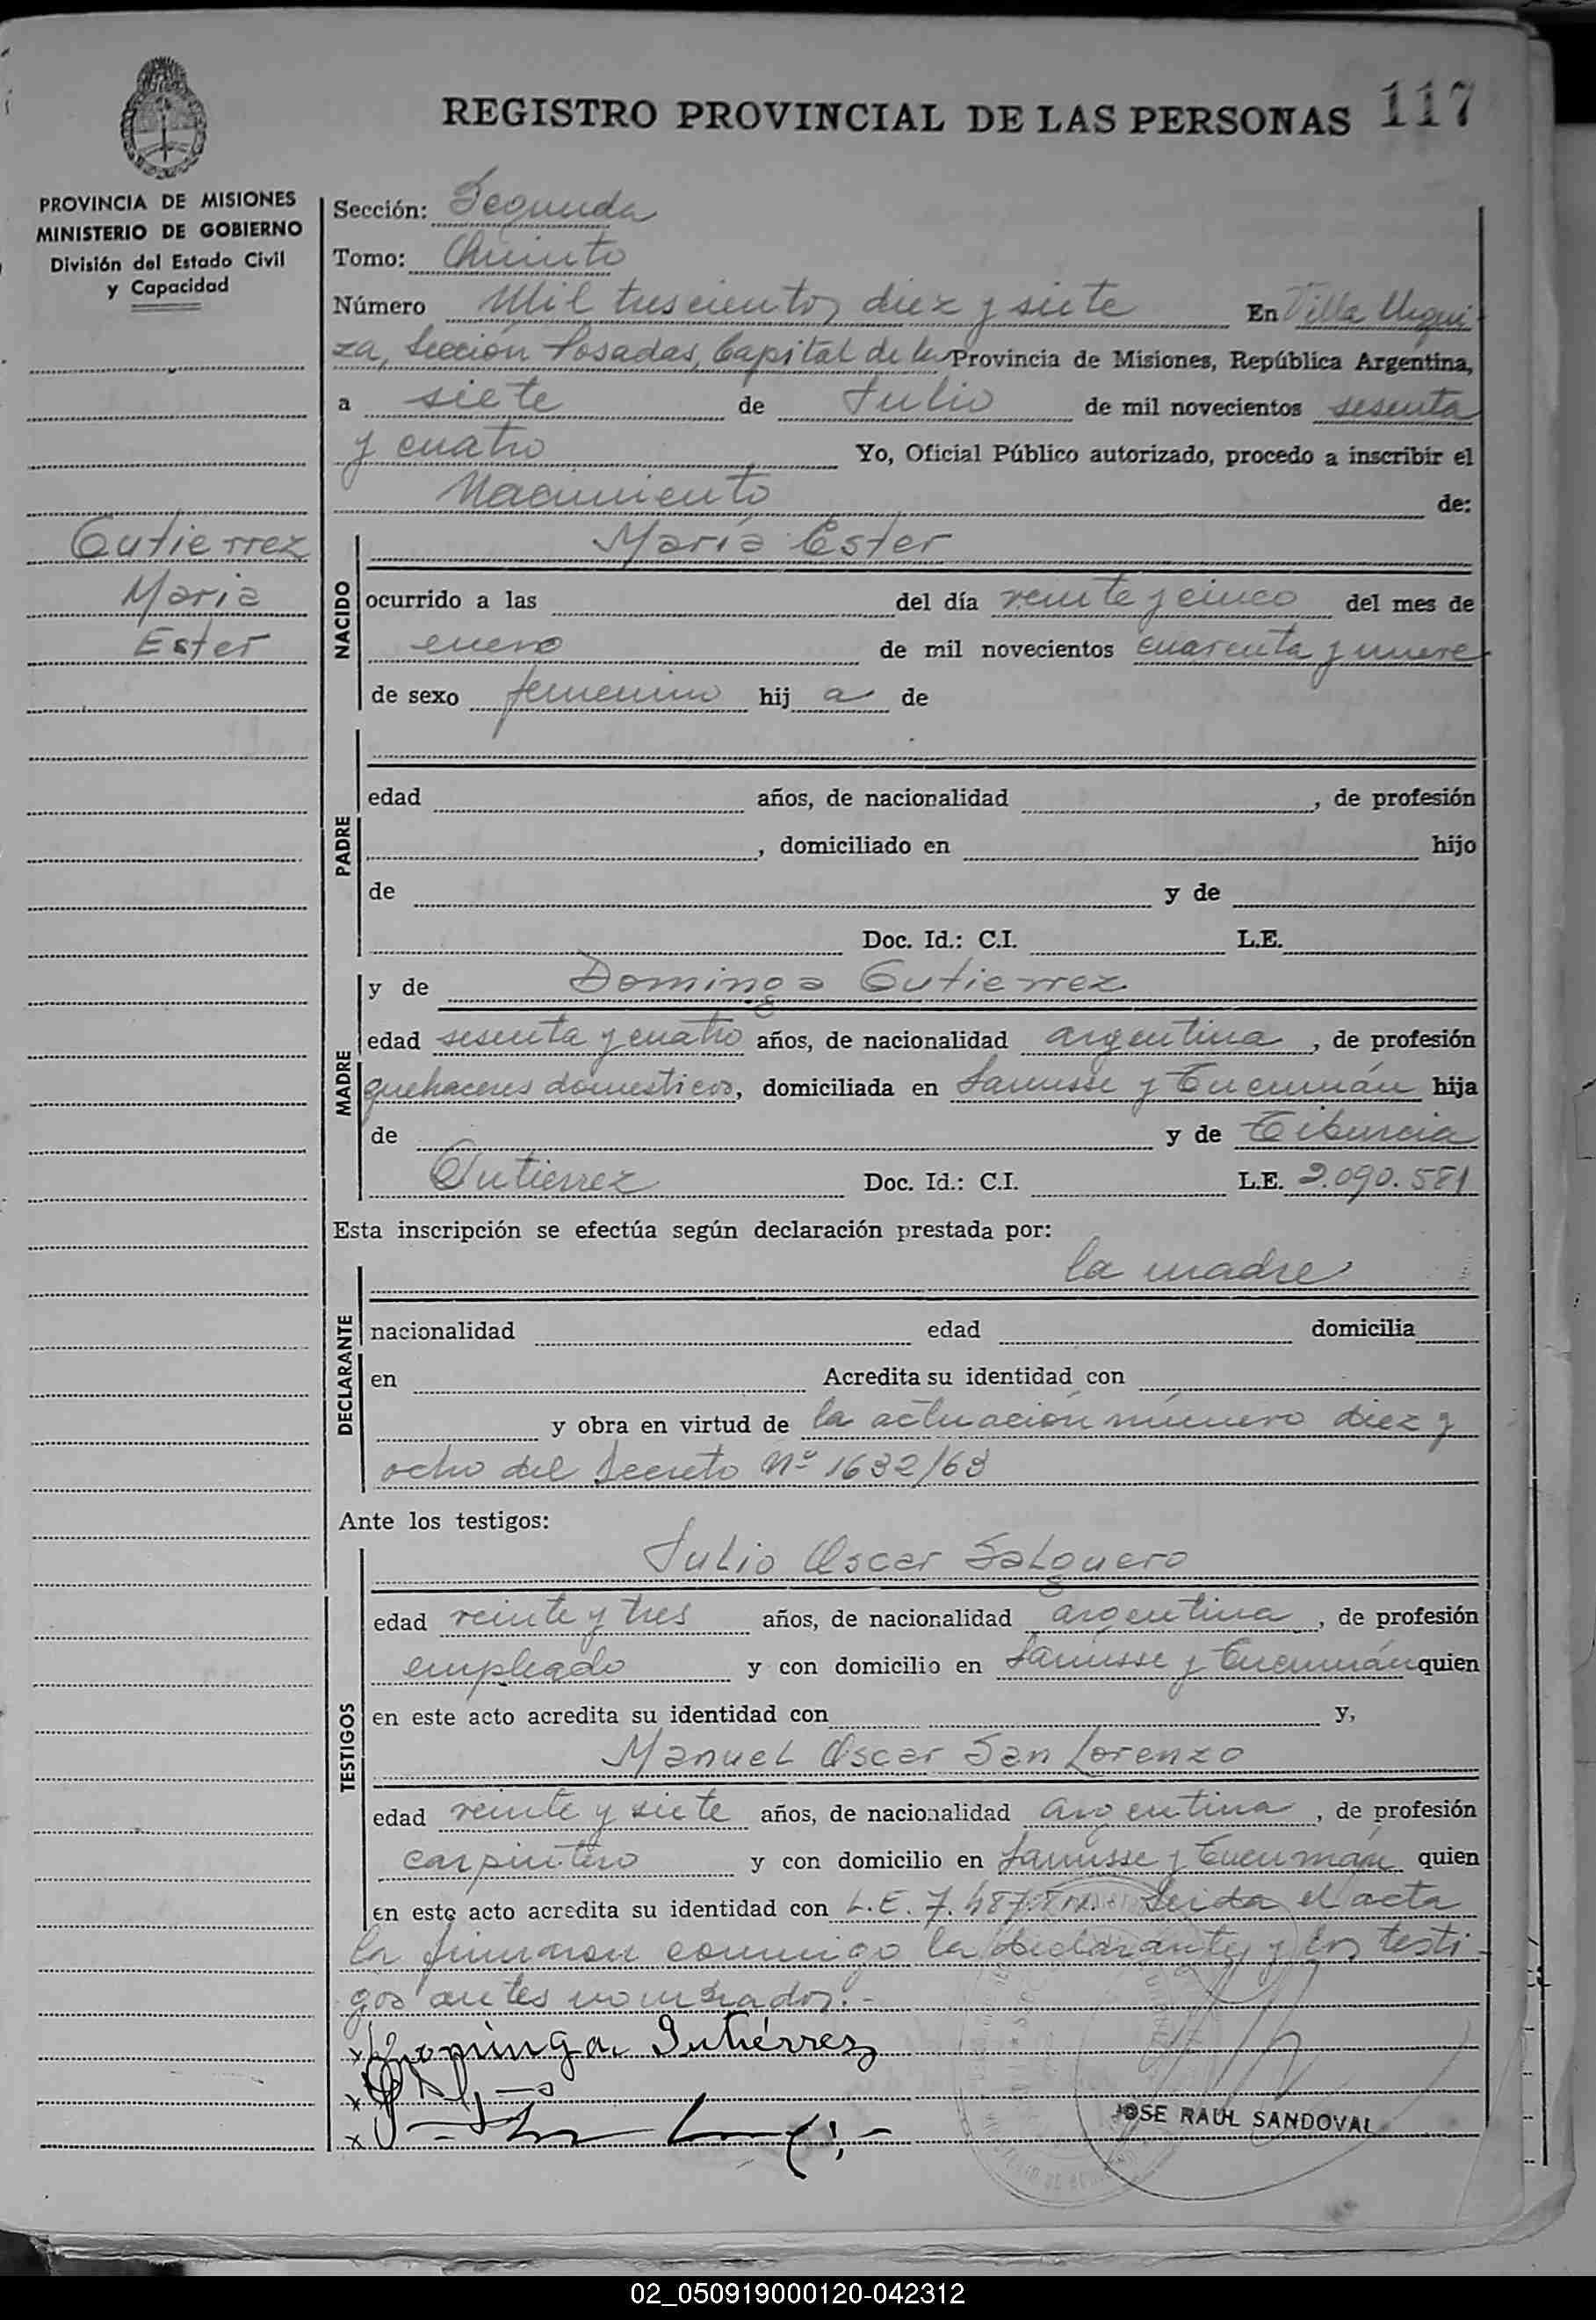 REGISTRO PROVINCIAL DE LAS PERSONAS 117
PROVINCIA DE MISIONES
MINISTERIO DE GOBIERNO
División del Estado Civil
y Capacidad
Gutierrez
Maria
Ester
Sección: Segunda
Tomo: Quinto
Número Mil trescientos diez y siete En Villa Urqui-
za, Sección Posadas, Capital de la Provincia de Misiones, República Argentina,
a siete de Julio de mil novecientos sesenta
y cuatro Yo, Oficial Público autorizado, procedo a inscribir el
Nacimiento de:
NACIDO
María Ester
ocurrido a las del día veinte y cinco del mes de
enero de mil novecientos cuarenta y nueve
de sexo femenino hij a de
PADRE
edad años, de nacionalidad , de profesión
, domiciliado en hijo
de y de
Doc. Id.: C.I. L.E.
MADRE
y de Dominga Gutierrez
edad sesenta y cuatro años, de nacionalidad argentina , de profesión
quehaceres domesticos, domiciliada en Lanusse y Tucumán hija
de y de Tiburcia
Gutierrez Doc. Id.: C.I. L.E. 2.090.581
Esta inscripción se efectúa según declaración prestada por:
DECLARANTE
la madre
nacionalidad edad domicilia
en Acredita su identidad con
y obra en virtud de la actuación número diez y
ocho del Decreto Nº 1632/63
Ante los testigos:
TESTIGOS
Julio Oscar Salguero
edad veinte y tres años, de nacionalidad argentina , de profesión
empleado y con domicilio en Lanusse y Tucumán quien
en este acto acredita su identidad con y,
Manuel Oscar San Lorenzo
edad veinte y siete años, de nacionalidad argentina , de profesión
carpintero y con domicilio en Lanusse y Tucumán quien
en este acto acredita su identidad con L.E. 7.487. Leida el acta
la firmaron conmigo la declarante y los testi-
gos antes nombrados.-
x Dominga Gutiérrez
x
x
JOSE RAUL SANDOVAL
02_050919000120-042312